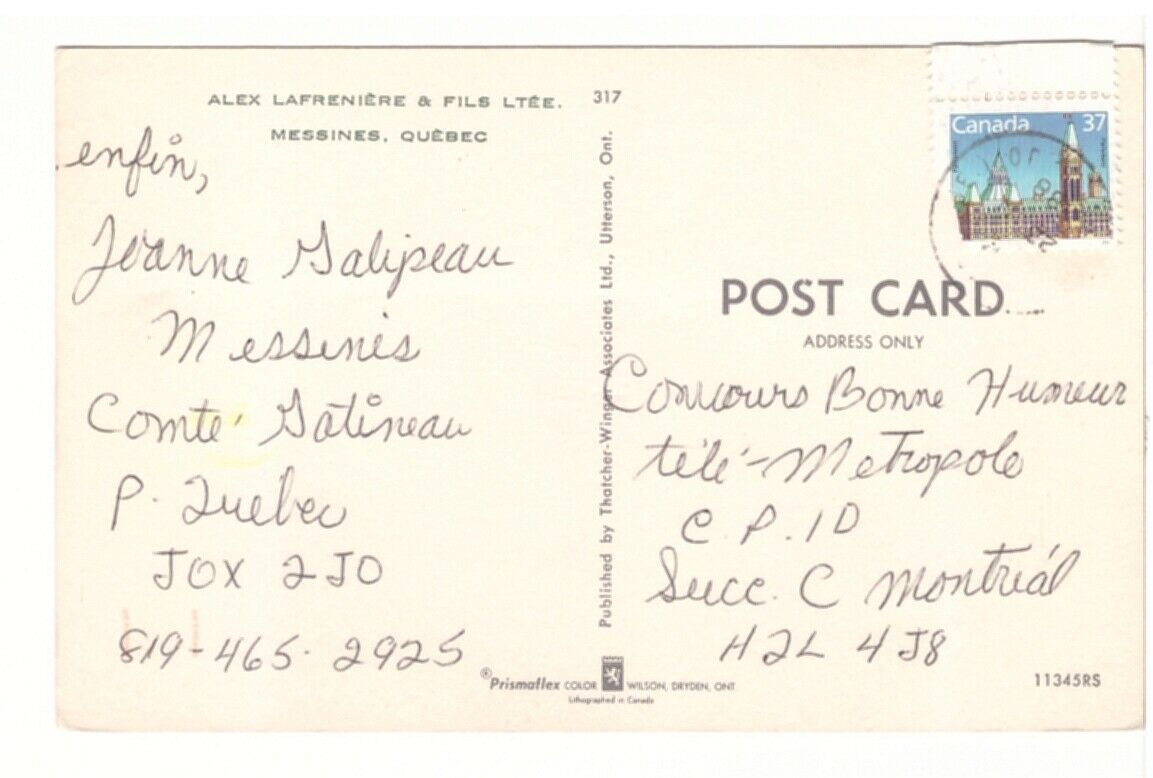 ALEX LAFRENIÈRE & FILS LTÉE.
MESSINES, QUÉBEC
317
enfin,
Joanne Galipeau
Messines
Comté Gatineau
P. Quebec
JOX 2JO
819-465-2925
Published by Thatcher-Winger Associates Ltd., Utterson, Ont.
Canada 37
POST CARD
ADDRESS ONLY
Concours Bonne Humeur
télé-Metropole
C.P. 10
Succ. C Montréal
H2L 4J8
®Prismaflex COLOR WILSON, DRYDEN, ONT
Lithographed in Canada
11345RS